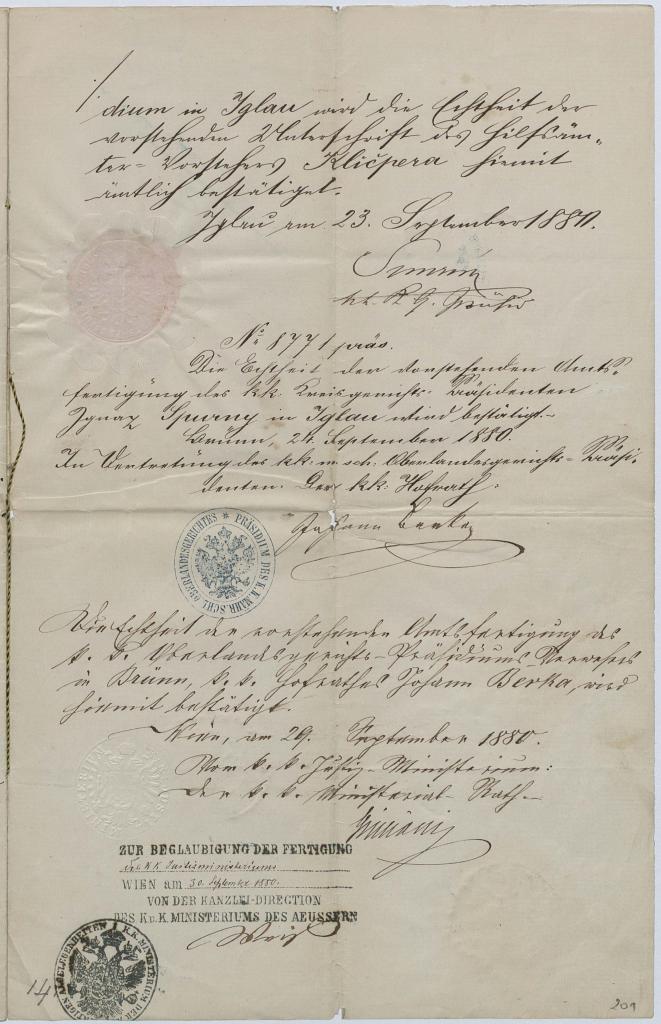 dium in Iglau wird die Echtheit der
vorstehenden Unterschrift des Hilfsäm-
ter-Vorstehers Kličpera hiemit
ämtlich bestätiget.
Iglau am 23. September 1880.
No 8771 präs.
Die Echtheit der vorstehenden Amts-
fertigung des kk. Kreisgerichts-Präsidenten
Ignaz Spurny in Iglau wird bestätigt.-
Brünn, 24. September 1880.
In Vertretung des kk. m. sch. Oberlandesgerichts-Präsi-
denten. Der kk: Hofrath:
Johann Berka
PRÄSIDIUM DES K.K. MÄHR. SCHL. OBERLANDESGERICHTES
Die Echtheit der vorstehenden Amtsfertigung des
k. k. Oberlandesgerichts-Präsidiums-Verwesers
in Brünn, k. k. Hofrathes Johann Berka, wird
hiemit bestätigt.
Wien, am 29. September 1880.
Vom k. k. Justiz-Ministerium:
Der k. k. Ministerial-Rath
ZUR BEGLAUBIGUNG DER FERTIGUNG
des KK Justizministeriums
WIEN am 30. September 1880.
VON DER KANZLEI-DIRECTION
DES K.u.K. MINISTERIUMS DES AEUSSERN
K.K. MINISTERIUM DER
ANGELEGENHEITEN
14
209